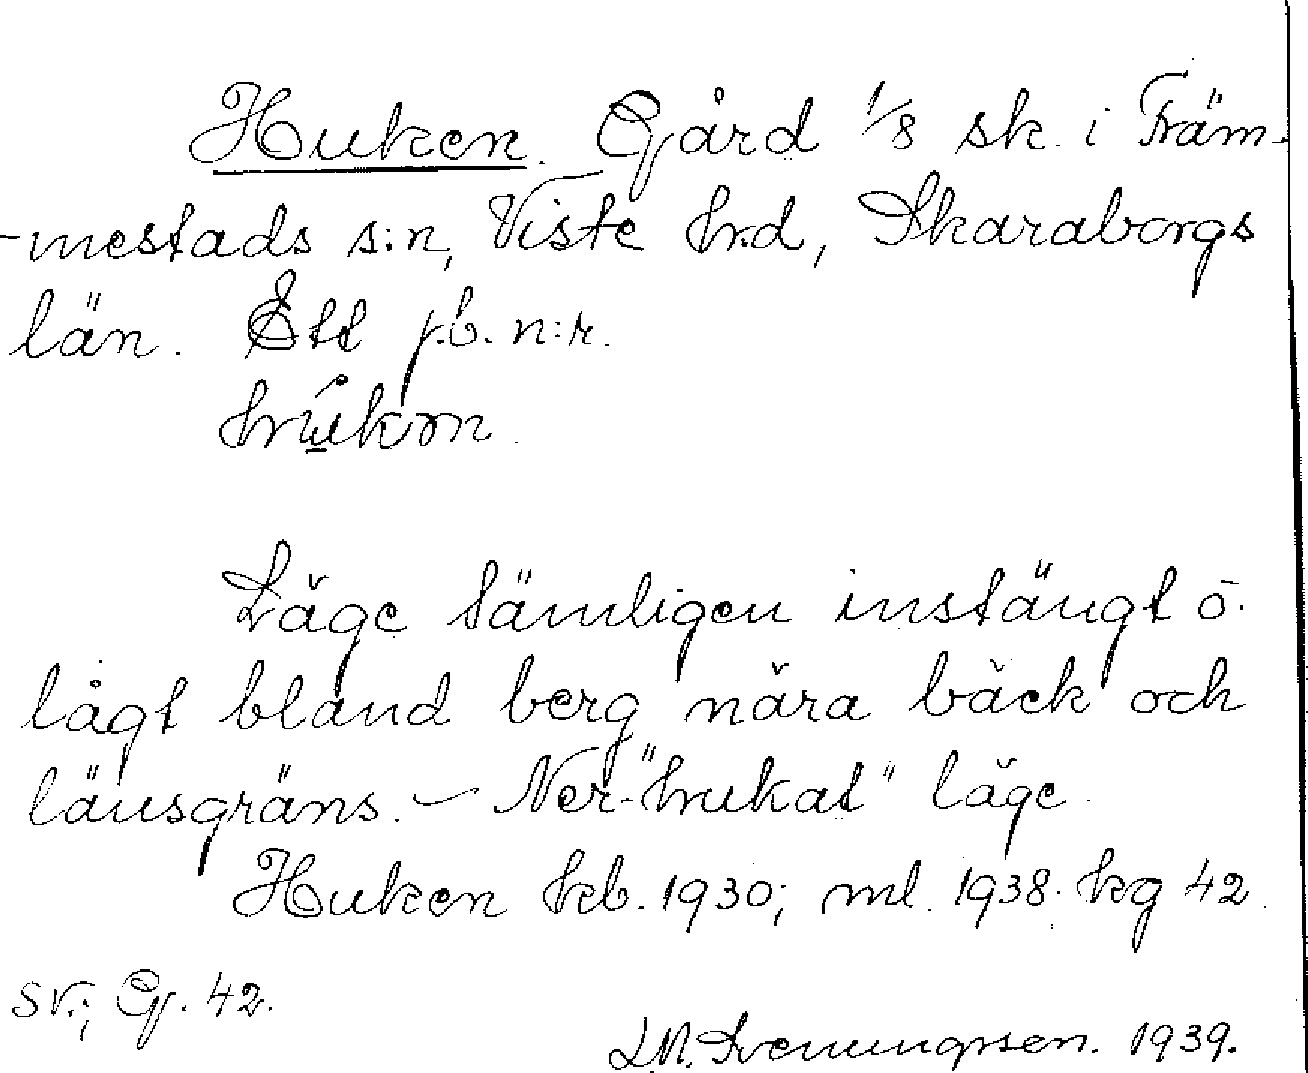 Huken. Gård 1/8 sk. i Främ-
-mestads s:n, Viste hrd, Skaraborgs
län. Ett j.b. n:r.
Läge tämligen instängt o.
lågt bland berg nära bäck och
länsgräns. – Ner-"hukat" läge.
Huken kb. 1930; ml. 1938. kg 42.
sv.; G. 42.
1939.